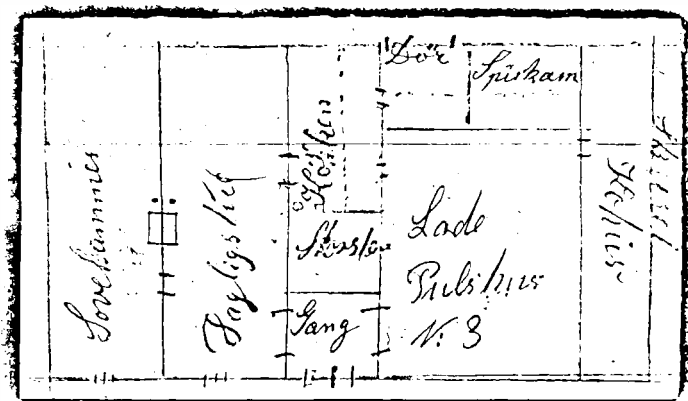 Sovekammer
Dagligstue
Köcken
Skorsten
Gang
Dör
Spiskam
Lade
Pulshus
N. 3
Kohus